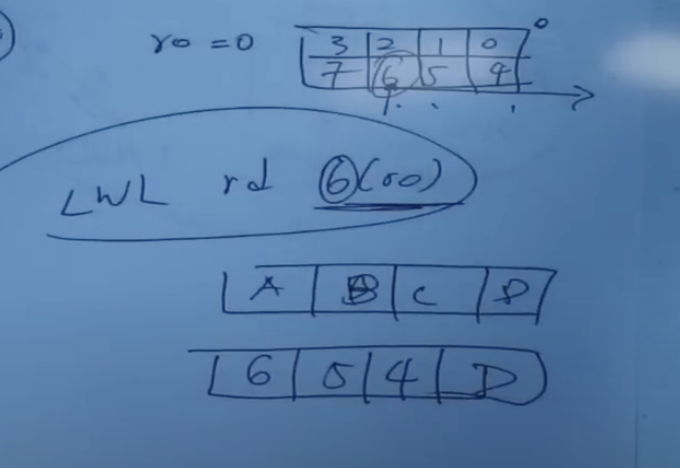 r0 = 0
3 2 1 0 0
7 6 5 4
LWL rd 6(r0)
A B C D
6 5 4 D